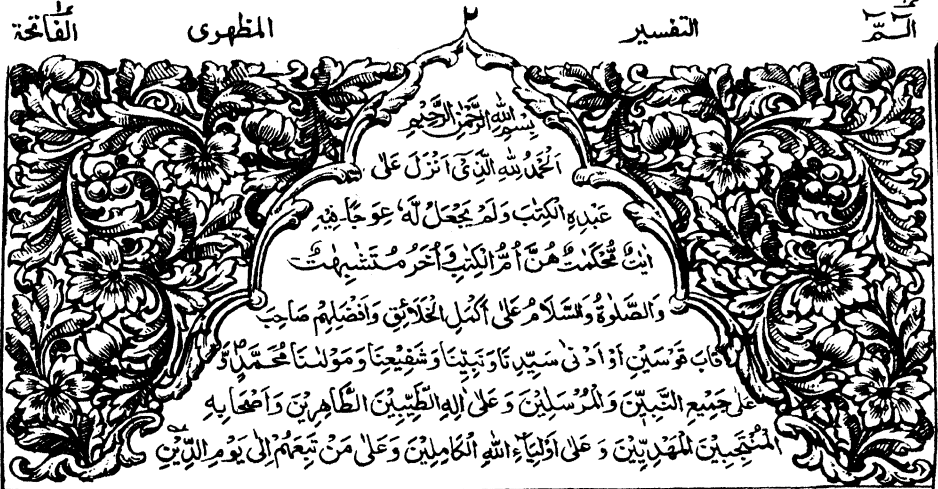 الٓمّٓ ١ التفسير ٢ المظهرى الفاتحة ١
بِسْمِ اللهِ الرَّحْمٰنِ الرَّحِيْمِ
اَلْحَمْدُ لِلّٰهِ الَّذِىْٓ اَنْزَلَ عَلٰى
عَبْدِهِ الْكِتٰبَ وَلَمْ يَجْعَلْ لَّهٗ عِوَجًا۔ فِيْهِ
اٰيٰتٌ مُّحْكَمٰتٌ هُنَّ اُمُّ الْكِتٰبِ وَاُخَرُ مُتَشٰبِهٰتٌ
وَالصَّلٰوةُ وَالسَّلَامُ عَلٰى اَكْمَلِ الْخَلَائِقِ وَاَفْضَلِهِمْ صَاحِبِ
قَابَ قَوْسَيْنِ اَوْ اَدْنٰى سَيِّدِنَا وَنَبِيِّنَا وَشَفِيْعِنَا وَمَوْلٰىنَا مُحَمَّدٍ وَّ
عَلٰى جَمِيْعِ النَّبِيّٖنَ وَالْمُرْسَلِيْنَ وَعَلٰى اٰلِهِ الطَّيِّبِيْنَ الطَّاهِرِيْنَ وَاَصْحَابِهِ
الْمُنْتَجَبِيْنَ الْمَهْدِيِّيْنَ وَعَلٰى اَوْلِيَاءِ اللهِ الْكَامِلِيْنَ وَعَلٰى مَنْ تَبِعَهُمْ اِلٰى يَوْمِ الدِّيْنِ